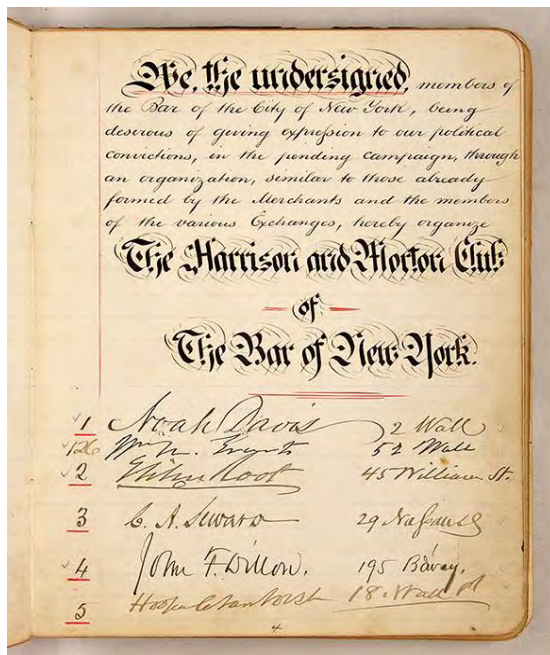 We, the undersigned, members of
the Bar of the City of New York, being
desirous of giving expression to our political
convictions, in the pending campaign, through
an organization, similar to those already
formed by the Merchants and the members
of the various Exchanges, hereby organize
The Harrison and Morton Club
of
The Bar of New York.
1 Noah Davis 2 Wall
126 Wm. M. Evarts 52 Wall
2 Elihu Root 45 William St.
3 C. A. Seward 29 Nassau St
4 John F. Dillon. 195 Bdway.
5 Hooper C. Van Vorst 18. Wall St
4